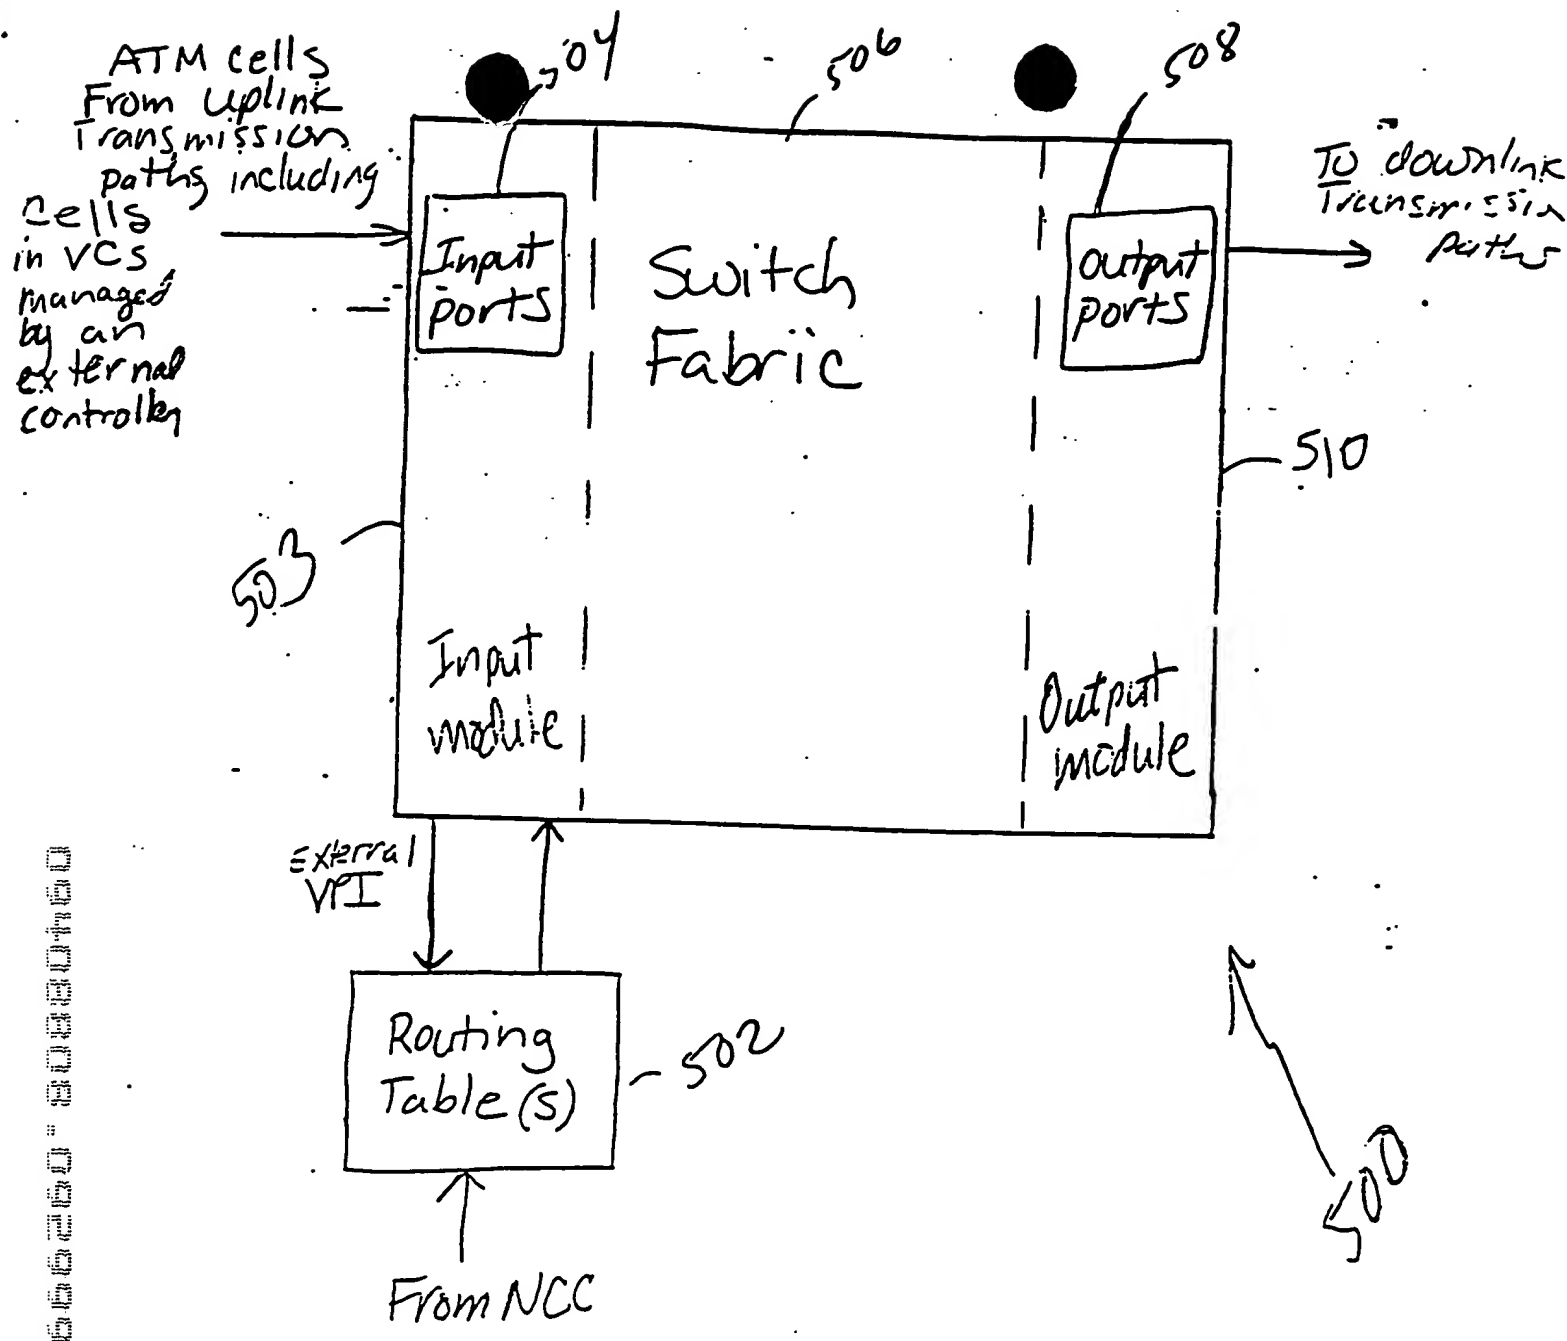 ATM cells
From uplink
Transmission
paths including
cells
in VCs
managed
by an
external
controller
504
506
508
To downlink
Transmission
paths
Input
ports
Switch
Fabric
Output
ports
510
503
Input
module
Output
module
External
VPI
Routing
Table(s)
502
500
From NCC
09408808.092999